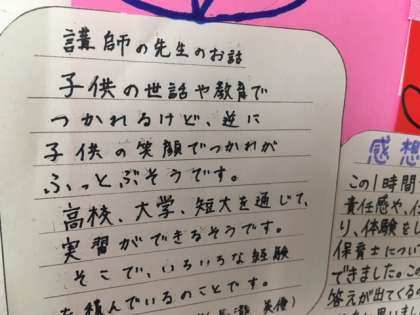 講師の先生のお話
子供の世話や教育で
つかれるけど、逆に
子供の笑顔でつかれが
ふっとぶそうです。
高校、大学、短大を通じて、
実習ができるそうです。
そこで、いろいろな経験
を積んでいるのことです。
感想
この1時間
責任感や、
り、体験をし
保育士につい
できました。この
答えが出てくるの